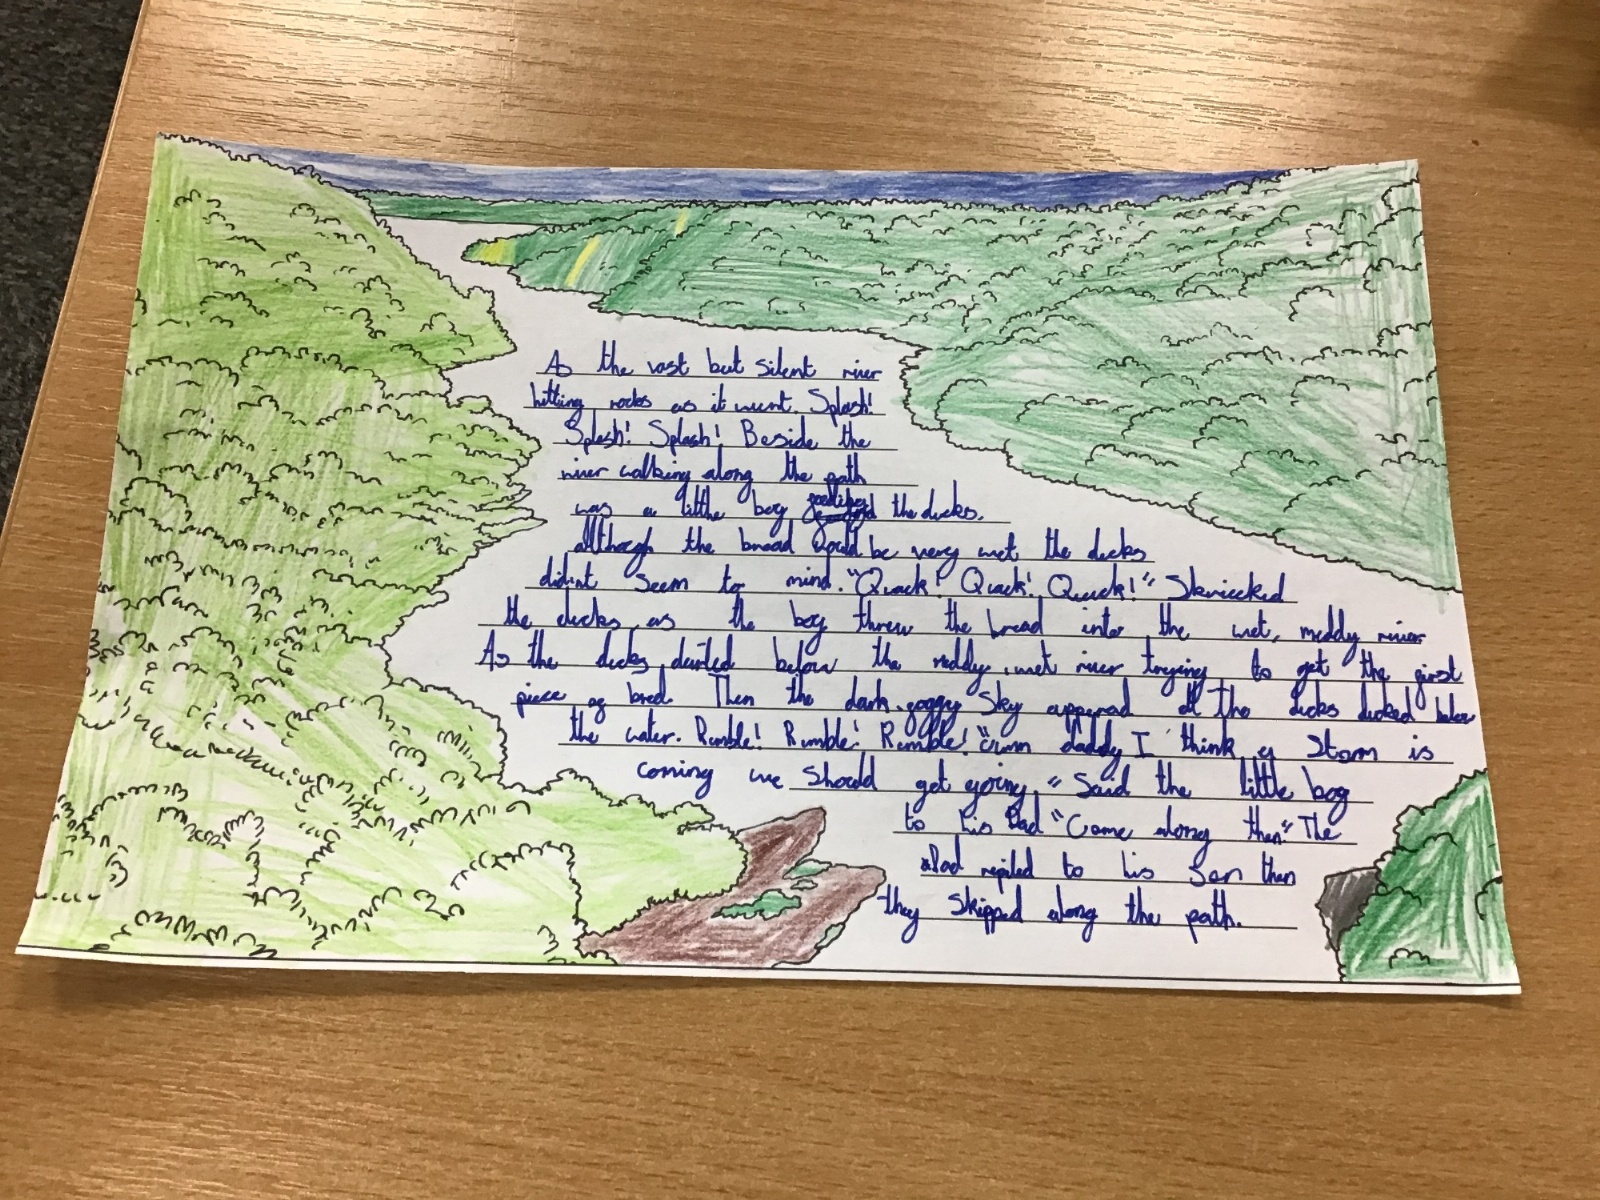 As the vast but silent river
hitting rocks as it went. Splash!
Splash! Splash! Beside the
river walking along the path
was a little boy feeding the ducks.
although the bread would be very wet the ducks
didnt seem to mind. "Quack! Quack! Quack!" Skriecked
the ducks, as the boy threw the bread into the wet, muddy river
As the ducks, darted below the muddy, wet river trying to get the first
piece of bred. Then the dark, foggy Sky appered all the ducks ducked below
the water. Rumble! Rumble! Rumble! "umm daddy I think a Storm is
coming we should get going," Said the little boy
to his Dad "Come along then" The
Dad repiled to his Son then
they skipped along the path.